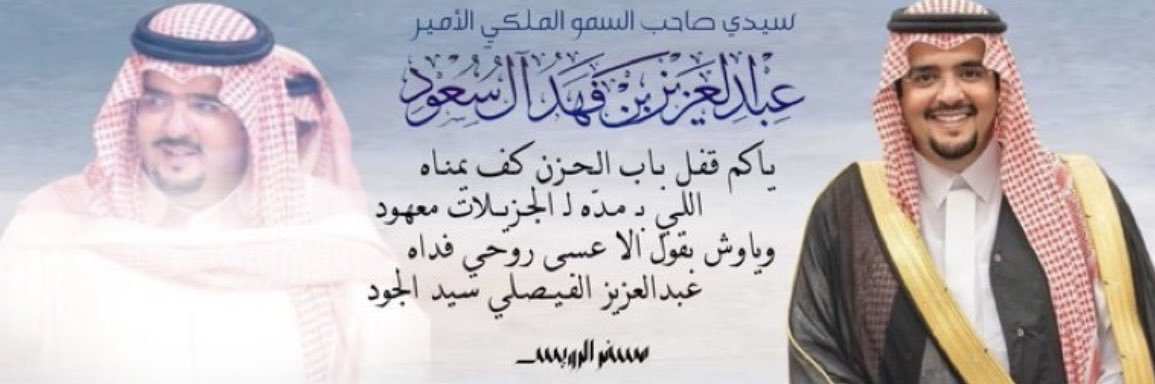 سيدي صاحب السمو الملكي الأمير
عبدالعزيز بن فهد آل سعود
ياكم قفل باب الحزن كف يمناه
اللي بـ مدّه لـ الجزيلات معهود
وياوش بقول الا عسى روحي فداه
عبدالعزيز الفيصلي سيد الجود
سفر الرويس